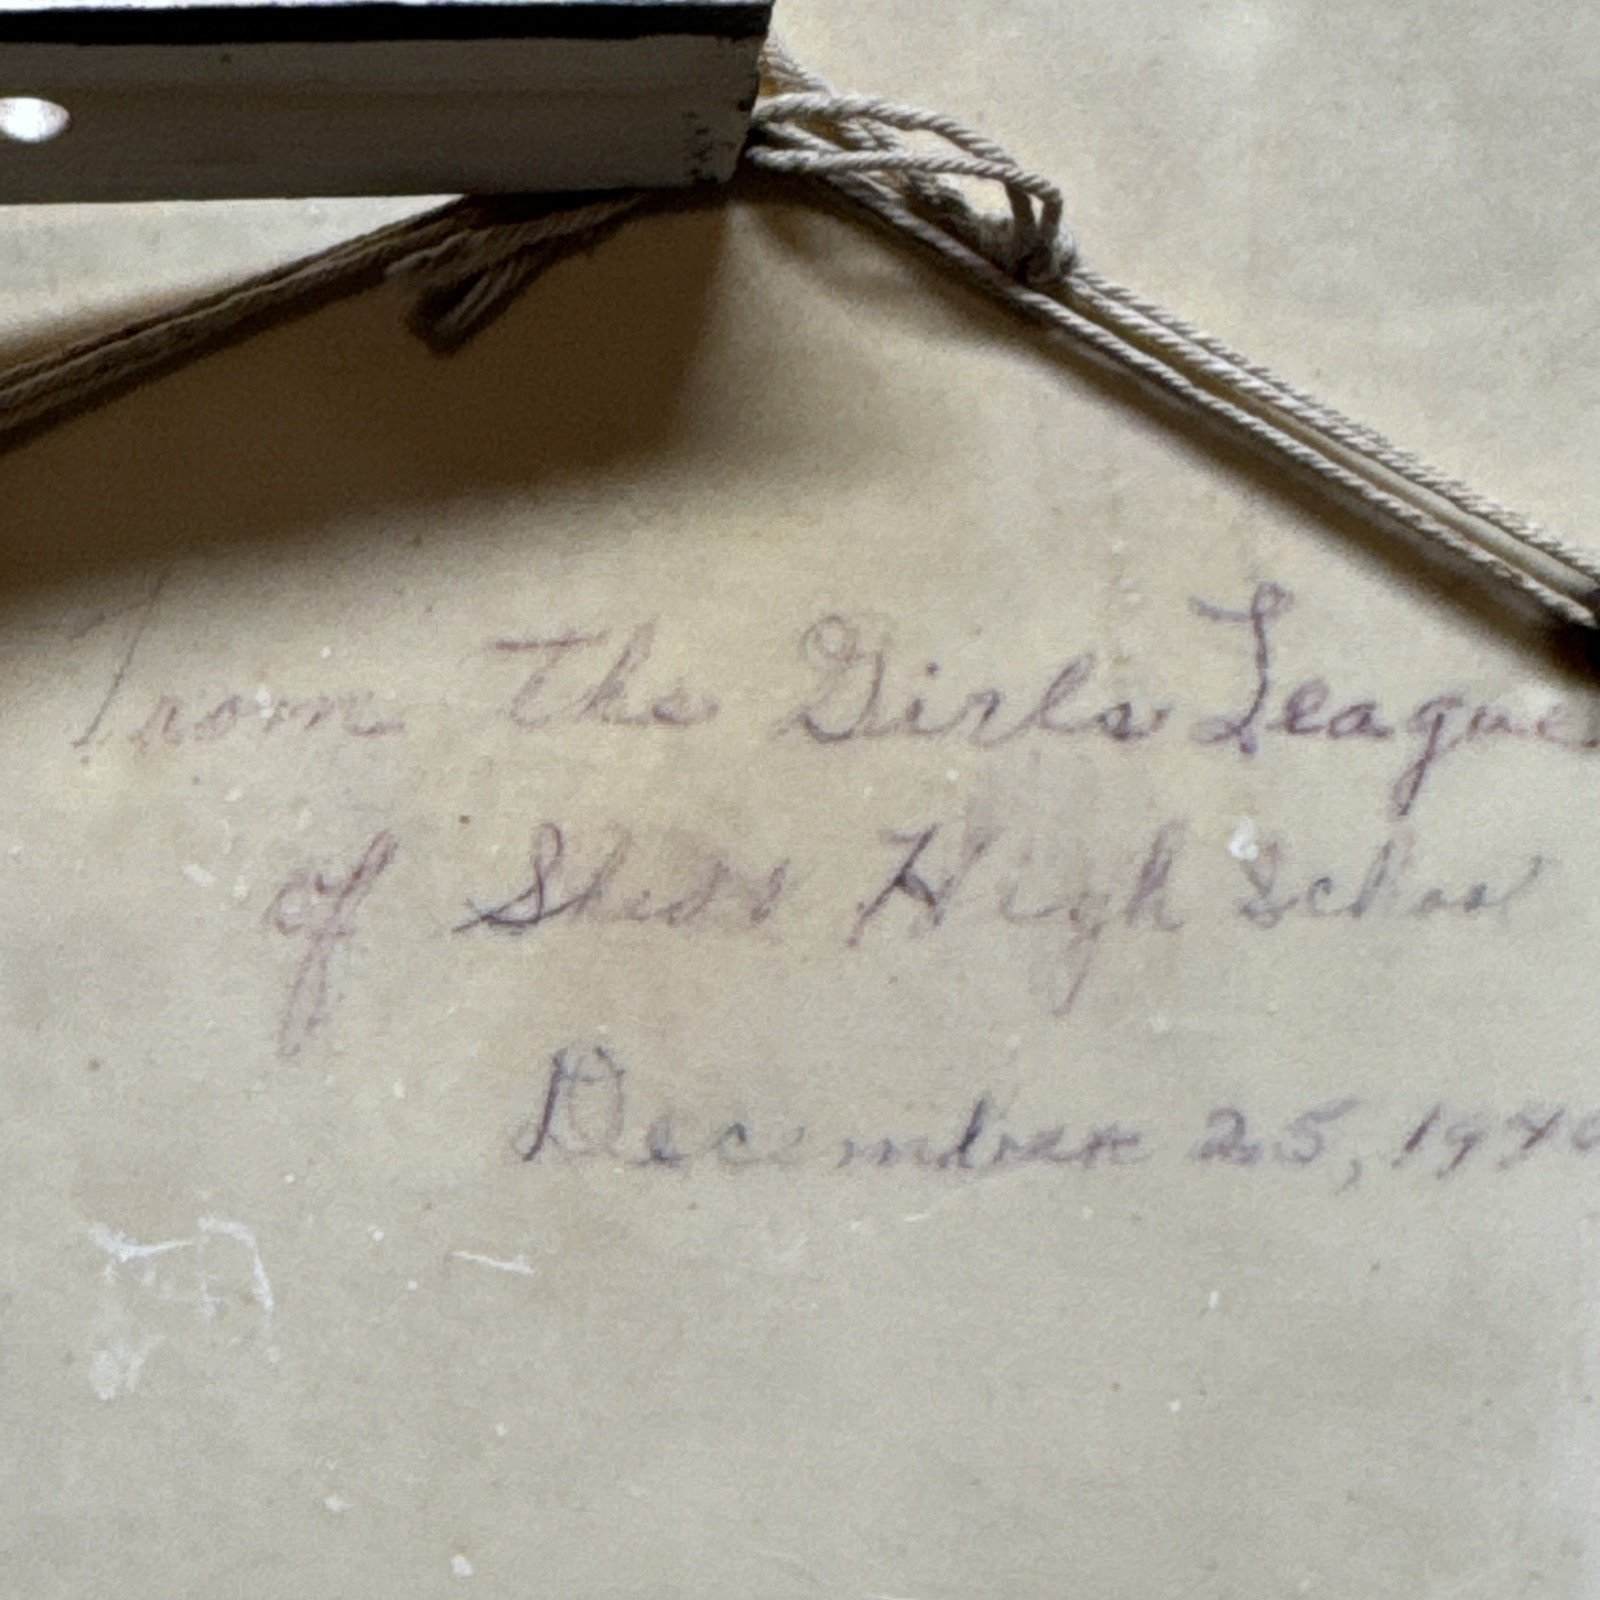 From The Girls League
of Shedd High School
December 25, 1940